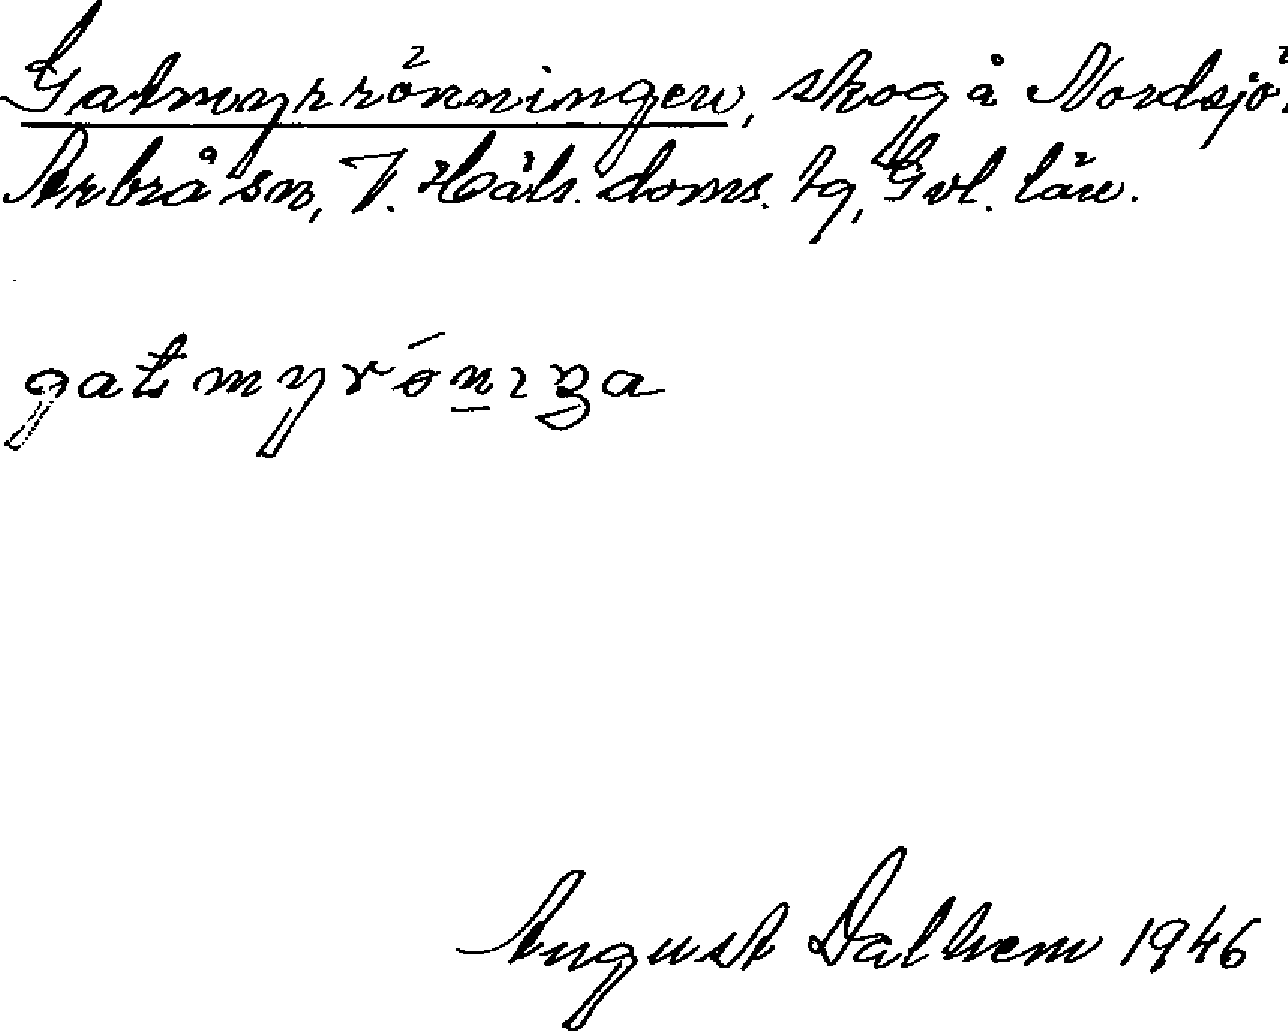 Gatmyrrönningen, skog å Nordsjö,
Arbrå sn, V. Häls. doms. tg, Gvl. län.
gatmyrǿn̲ıŋa
August Dalhem 1946